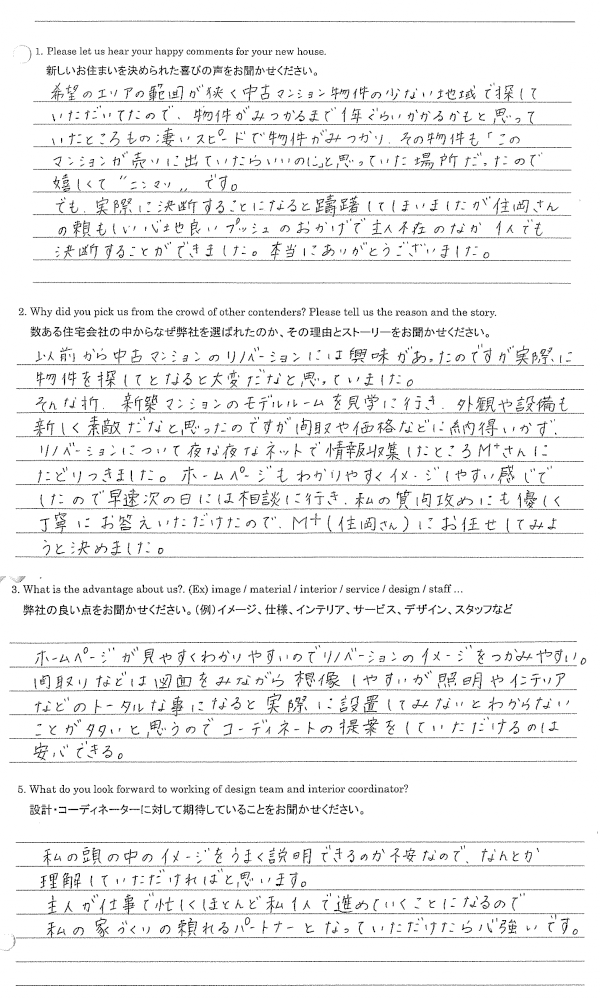 1. Please let us hear your happy comments for your new house.
新しいお住まいを決められた喜びの声をお聞かせください。
希望のエリアの範囲が狭く中古マンション物件の少ない地域で探して
いただいてたので、物件がみつかるまで1年ぐらいかかるかもと思って
いたところもの凄いスピードで物件がみつかり、その物件も「この
マンションが売りに出ていたらいいのに」と思っていた場所だったので
嬉しくて〝ニンマリ〟です。
でも、実際に決断することになると躊躇してしまいましたが住岡さん
の頼もしい心地良いプッシュのおかげで主人不在のなか1人でも
決断することができました。本当にありがとうございました。
2. Why did you pick us from the crowd of other contenders? Please tell us the reason and the story.
数ある住宅会社の中からなぜ弊社を選ばれたのか、その理由とストーリーをお聞かせください。
以前から中古マンションのリノベーションには興味があったのですが実際に
物件を探してとなると大変だなと思っていました。
そんな折、新築マンションのモデルルームを見学に行き、外観や設備も
新しく素敵だなと思ったのですが間取や価格などに納得いかず、
リノベーションについて夜な夜なネットで情報収集したところM+さんに
たどりつきました。ホームページもわかりやすくイメージしやすい感じで
したので早速次の日には相談に行き、私の質問攻めにも優しく
丁寧にお答えいただけたので、M+(住岡さん)にお任せしてみよ
うと決めました。
3. What is the advantage about us?. (Ex) image / material / interior / service / design / staff ...
弊社の良い点をお聞かせください。(例)イメージ、仕様、インテリア、サービス、デザイン、スタッフなど
ホームページが見やすくわかりやすいのでリノベーションのイメージをつかみやすい。
間取りなどは図面をみながら想像しやすいが照明やインテリア
などのトータルな事になると実際に設置してみないとわからない
ことが多いと思うのでコーディネートの提案をしていただけるのは
安心できる。
5. What do you look forward to working of design team and interior coordinator?
設計・コーディネーターに対して期待していることをお聞かせください。
私の頭の中のイメージをうまく説明できるのか不安なので、なんとか
理解していただければと思います。
主人が仕事で忙しくほとんど私1人で進めていくことになるので
私の家づくりの頼れるパートナーとなっていただけたら心強いです。